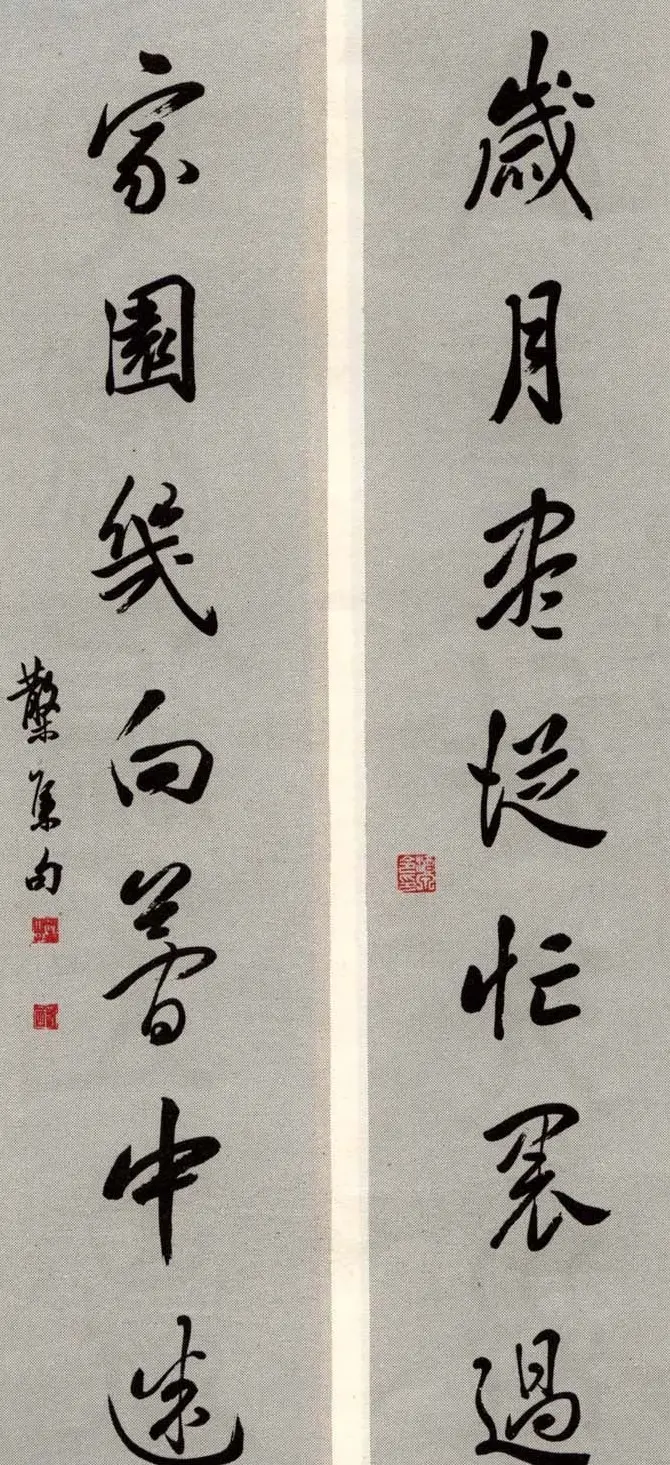 歲月盡從忙裏過
家園幾向夢中迷
散木集句